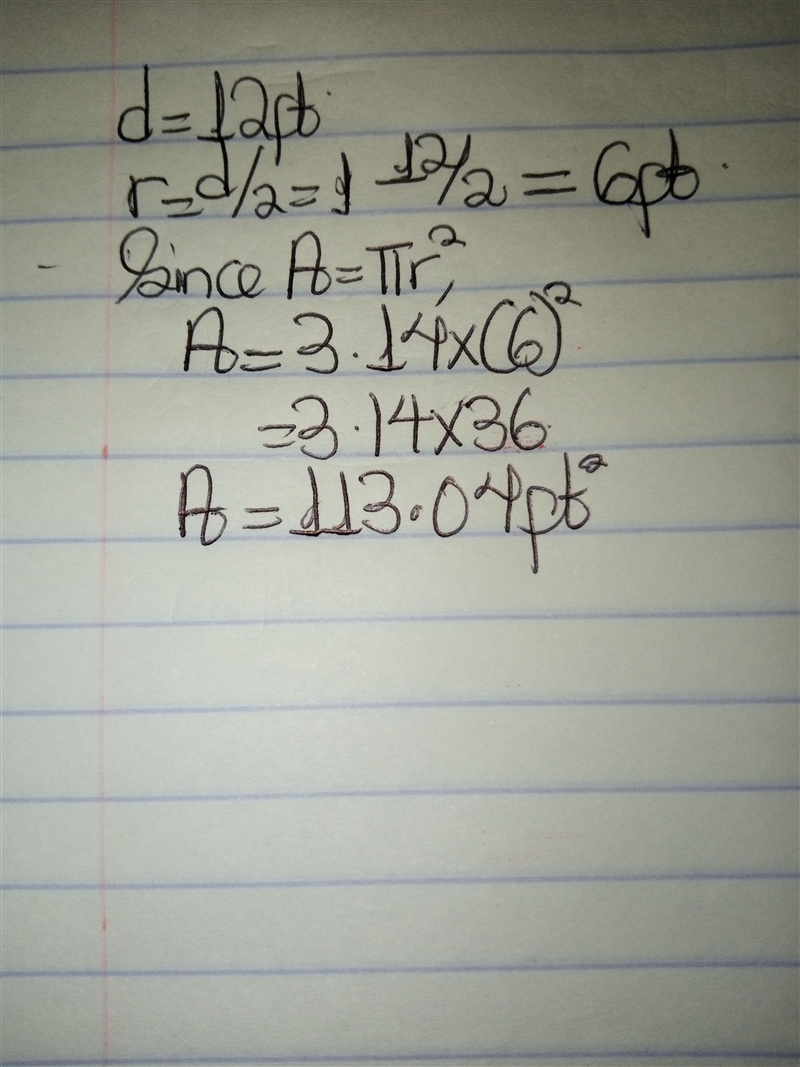 d=12pt
r=d/2=1 12/2=6pt.
Since A=πr²,
A=3.14x(6)²
=3.14x36
A=113.04pt²